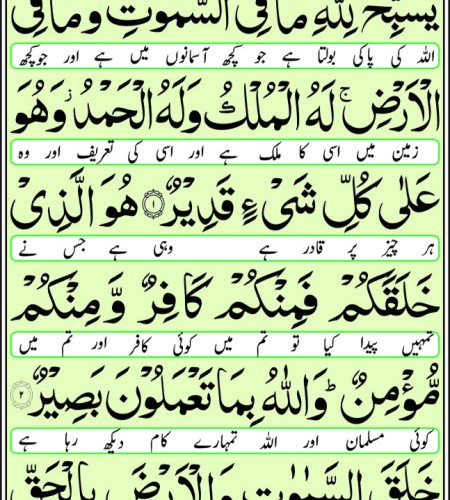 يُسَبِّحُ لِلّٰهِ مَا فِى السَّمٰوٰتِ وَمَا فِى
اللہ کی پاکی بولتا ہے جو کچھ آسمانوں میں ہے اور جو کچھ
الْاَرْضِ ۚ لَهُ الْمُلْكُ وَلَهُ الْحَمْدُ ؗ وَهُوَ
زمین میں اسی کا ملک ہے اور اسی کی تعریف اور وہ
عَلٰى كُلِّ شَىْءٍ قَدِيْرٌ ۝۱ هُوَ الَّذِىْ
ہر چیز پر قادر ہے وہی ہے جس نے
خَلَقَكُمْ فَمِنْكُمْ كَافِرٌ وَّمِنْكُمْ
تمہیں پیدا کیا تو تم میں کوئی کافر اور تم میں
مُّؤْمِنٌ ؕ وَاللّٰهُ بِمَا تَعْمَلُوْنَ بَصِيْرٌ ۝۲
کوئی مسلمان اور اللہ تمہارے کام دیکھ رہا ہے
خَلَقَ السَّمٰوٰتِ وَالْاَرْضَ بِالْحَقِّ